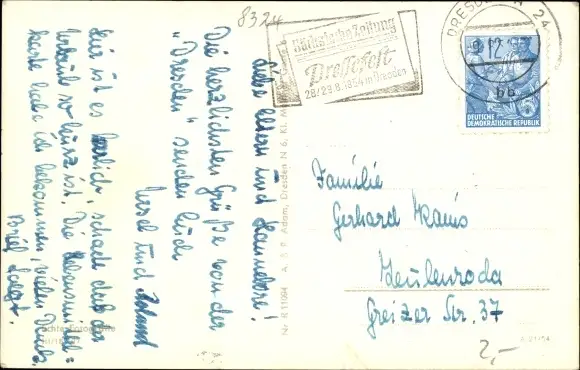 8324
Sächsische Zeitung
Pressefest
28/29.8.1954 in Dresden
DRESDEN A 24
12
bb
DEUTSCHE
DEMOKRATISCHE REPUBLIK
5
Liebe Eltern und Hannelore!
Die herzlichsten Grüße von der
"Dresden" senden Euch
Ursel und Roland
Hier ist es herrlich, schade daß der
Urlaub so kurz ist. Die Lebensmittel=
karte habe ich bekommen, vielen Dank.
Brief folgt.
Familie
Gerhard
Zeulenroda
Greizer Str. 37
2,-
A. & R. Adam, Dresden N 6, Kl. M
Nr. R 11094
Echte Fotografie